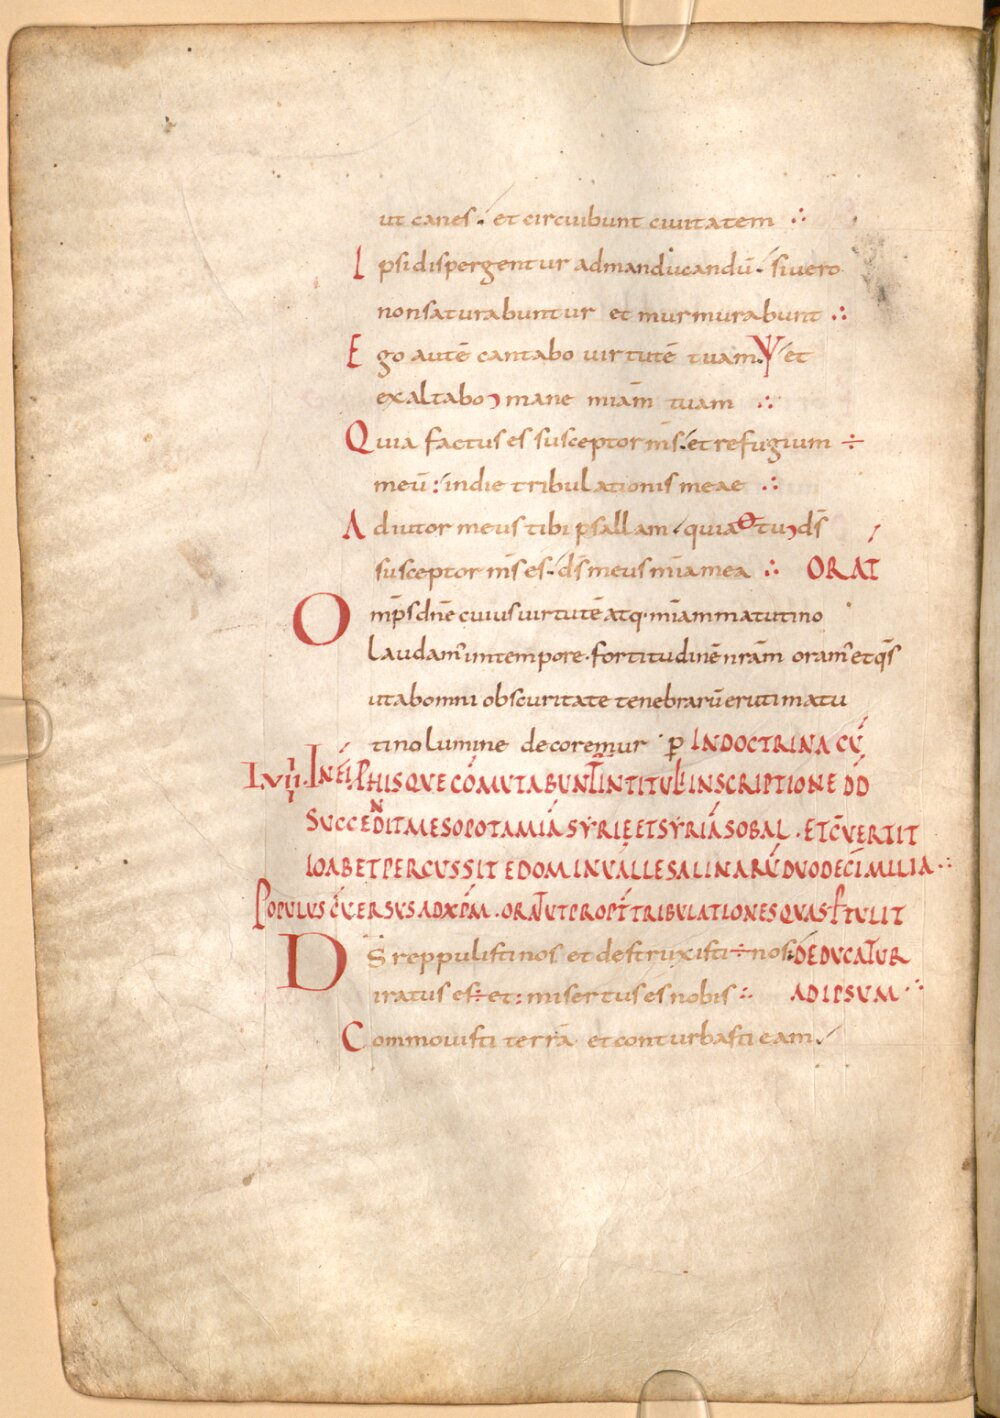 ut canes. et circuibunt ciuitatem ∴
Ipsi dispergentur ad manducandū. si uero
non saturabuntur et murmurabunt ∴
Ego autē cantabo uirtutē tuam. et
exaltabo mane miām tuam ∴
Quia factus es susceptor ms̄. et refugium ÷
meū: in die tribulationis meae ∴
Adiutor meus tibi psallam. quia tu ds̄
susceptor ms̄ es. ds̄ meus miā mea ∴ ORAT̄
Omps̄ dnē cuius uirtutē atq· miām matutino
laudam' in tempore. fortitudinē nrām oram' et qs̄
ut ab omni obscuritate tenebrarū eruti matu
tino lumine decoremur · p IN DOCTRINA CŪ
LVIIII. IN FI. HIS QVE CŌMVTABUNT̄ IN TITVLI INSCRIPTIONE DD̄
SVCCENDIT MESOPOTAMIĀ SYRIE ET SYRIĀ SOBAL. ET CV̄ERTIT
IOAB ET PERCVSSIT EDOM IN VALLE SALINARŪ DVODECĪ MILIA ∴
POPULUS CV̄ERSVS AD XP̄M. ORAT̄ UT PROPT̄ TRIBULATIONES QVAS P̄TULIT
DS̄ reppulisti nos et destruxisti ÷ nos: DEDVCAT̄UR
iratus es ÷ et: misertus es nobis ∴ AD IPSUM ∴
Commouisti terrā et conturbasti eam.